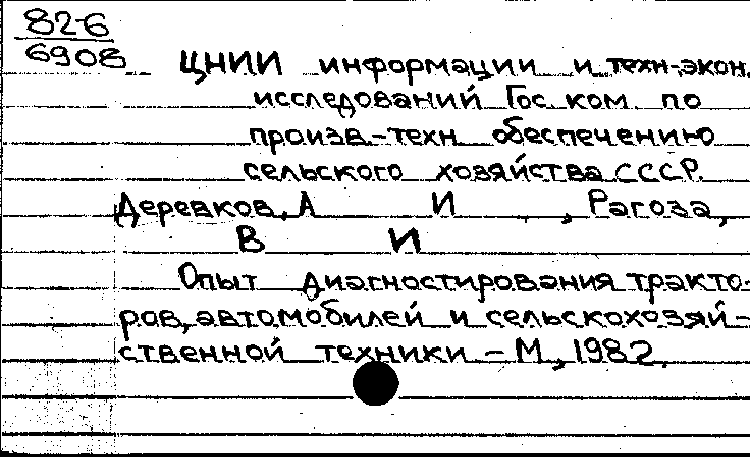 82-6
6908
ЦНИИ информации и техн.-экон.
исследований Гос. ком. по
произв.-техн. обеспечению
сельского хозяйства СССР.
Деревков, А И , Рагоза,
В И
Опыт диагностирования тракто-
ров, автомобилей и сельскохозяй-
ственной техники – М, 1982.